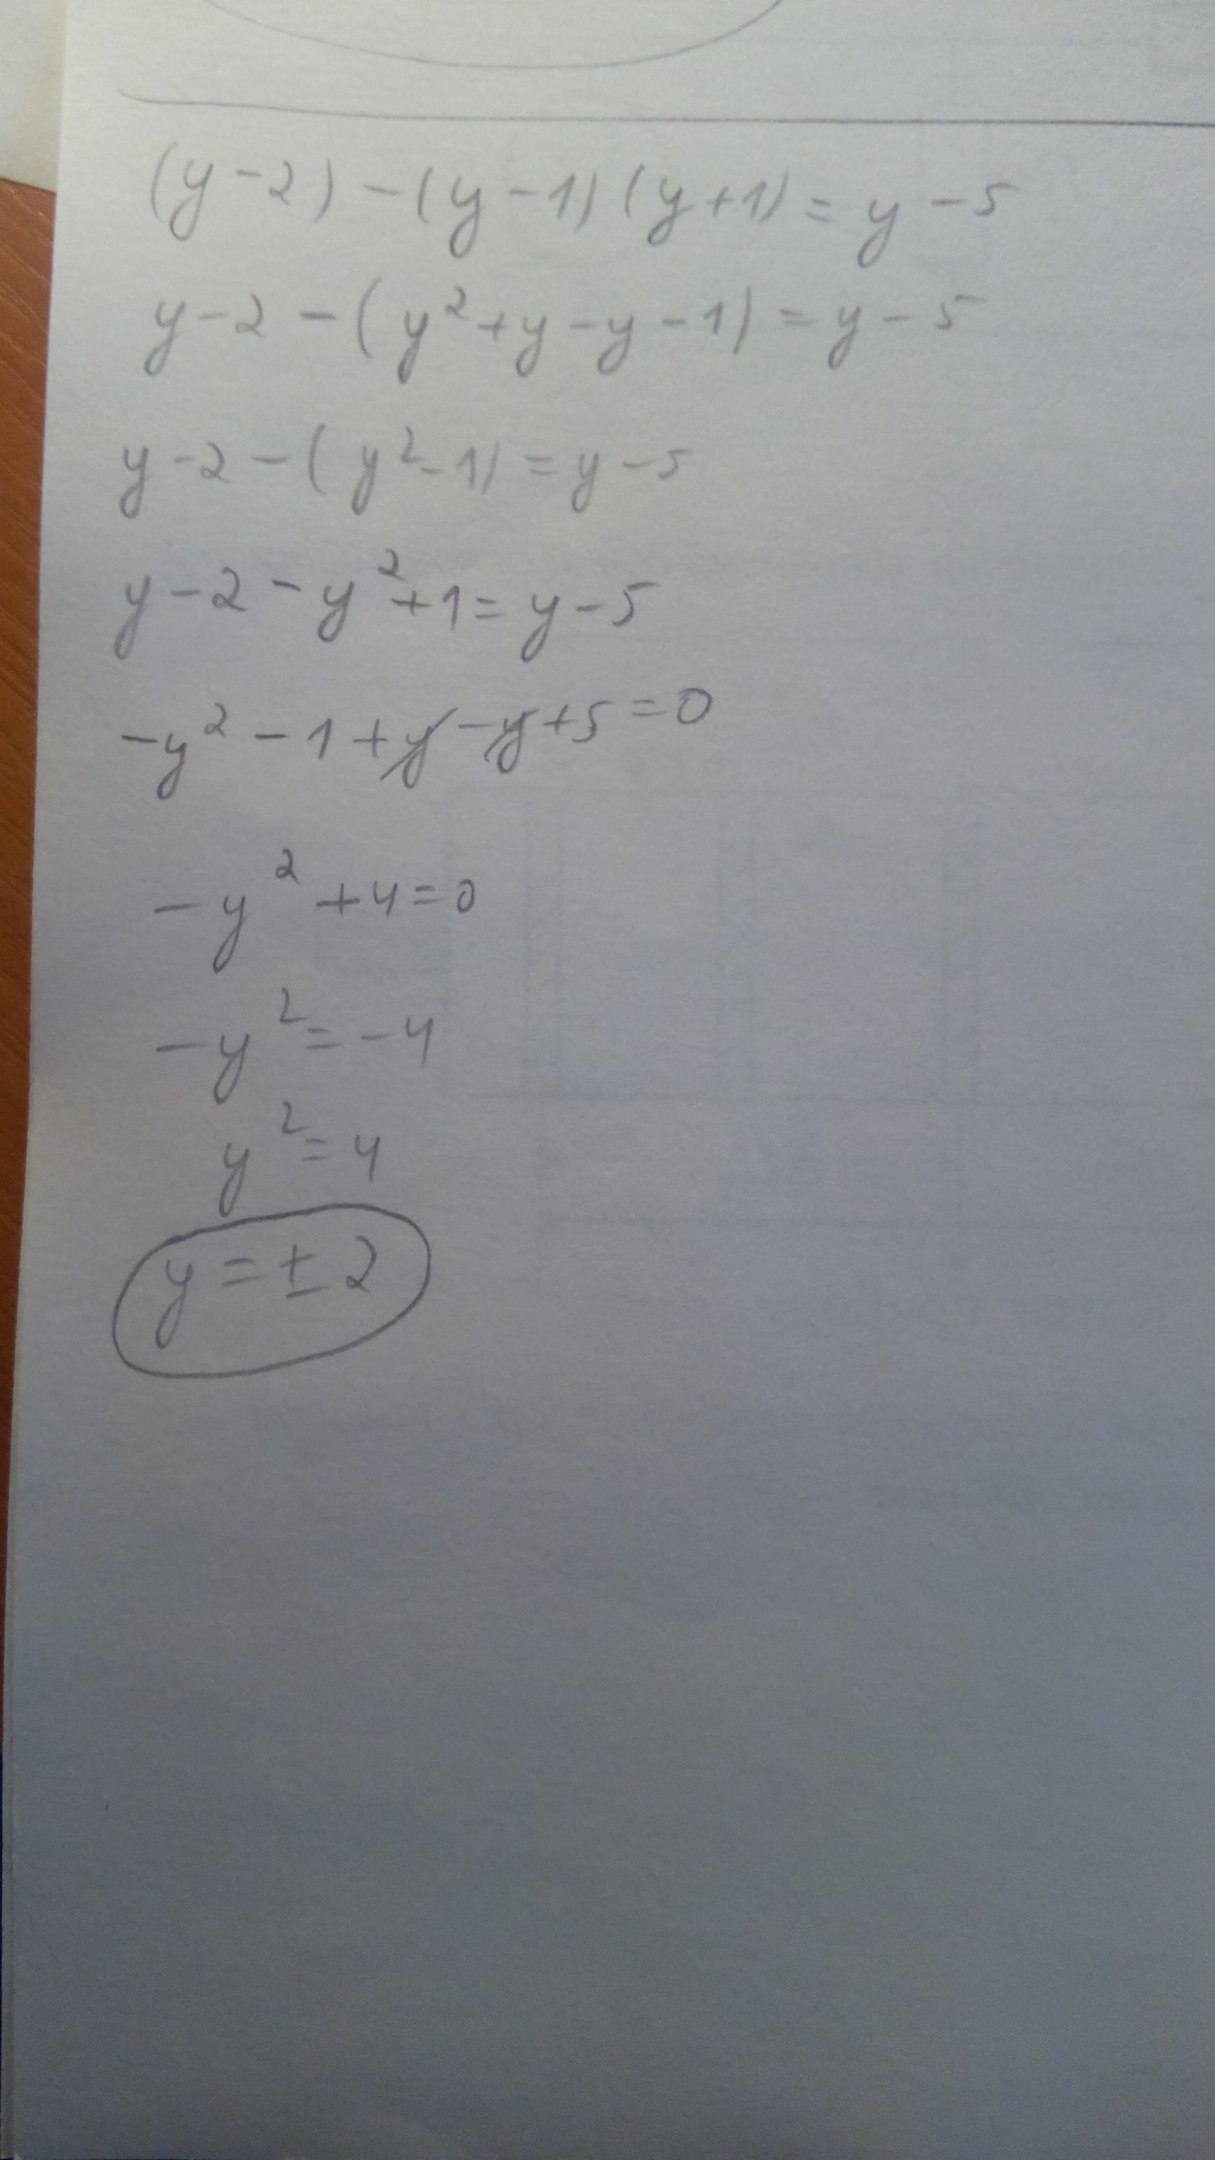 (y-2)-(y-1)(y+1)=y-5
y-2-(y²+y-y-1)=y-5
y-2-(y²-1)=y-5
y-2-y²+1=y-5
-y²-1+y-y+5=0
-y²+4=0
-y²=-4
y²=4
y=±2